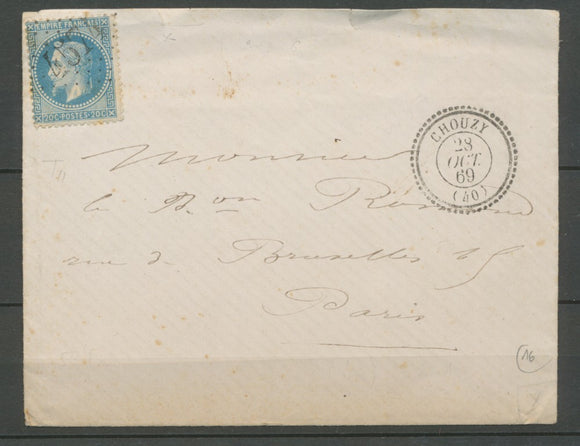 EMPIRE FRANÇAIS
20C POSTES 20C
CHOUZY
28
OCT.
69
(40)
Monsieur
le Bon
rue de Bruxelles 15
Paris
16